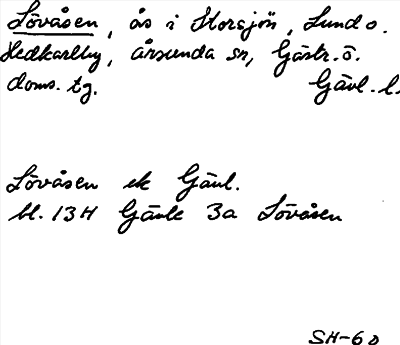 Lövåsen, ås i Storsjön, Lund o.
Hedkarlby, Årsunda sn, Gästr. ö.
doms. tg. Gävl. l.
Lövåsen ek Gävl.
bl. 13H Gävle 3a Lövåsen
SH-60